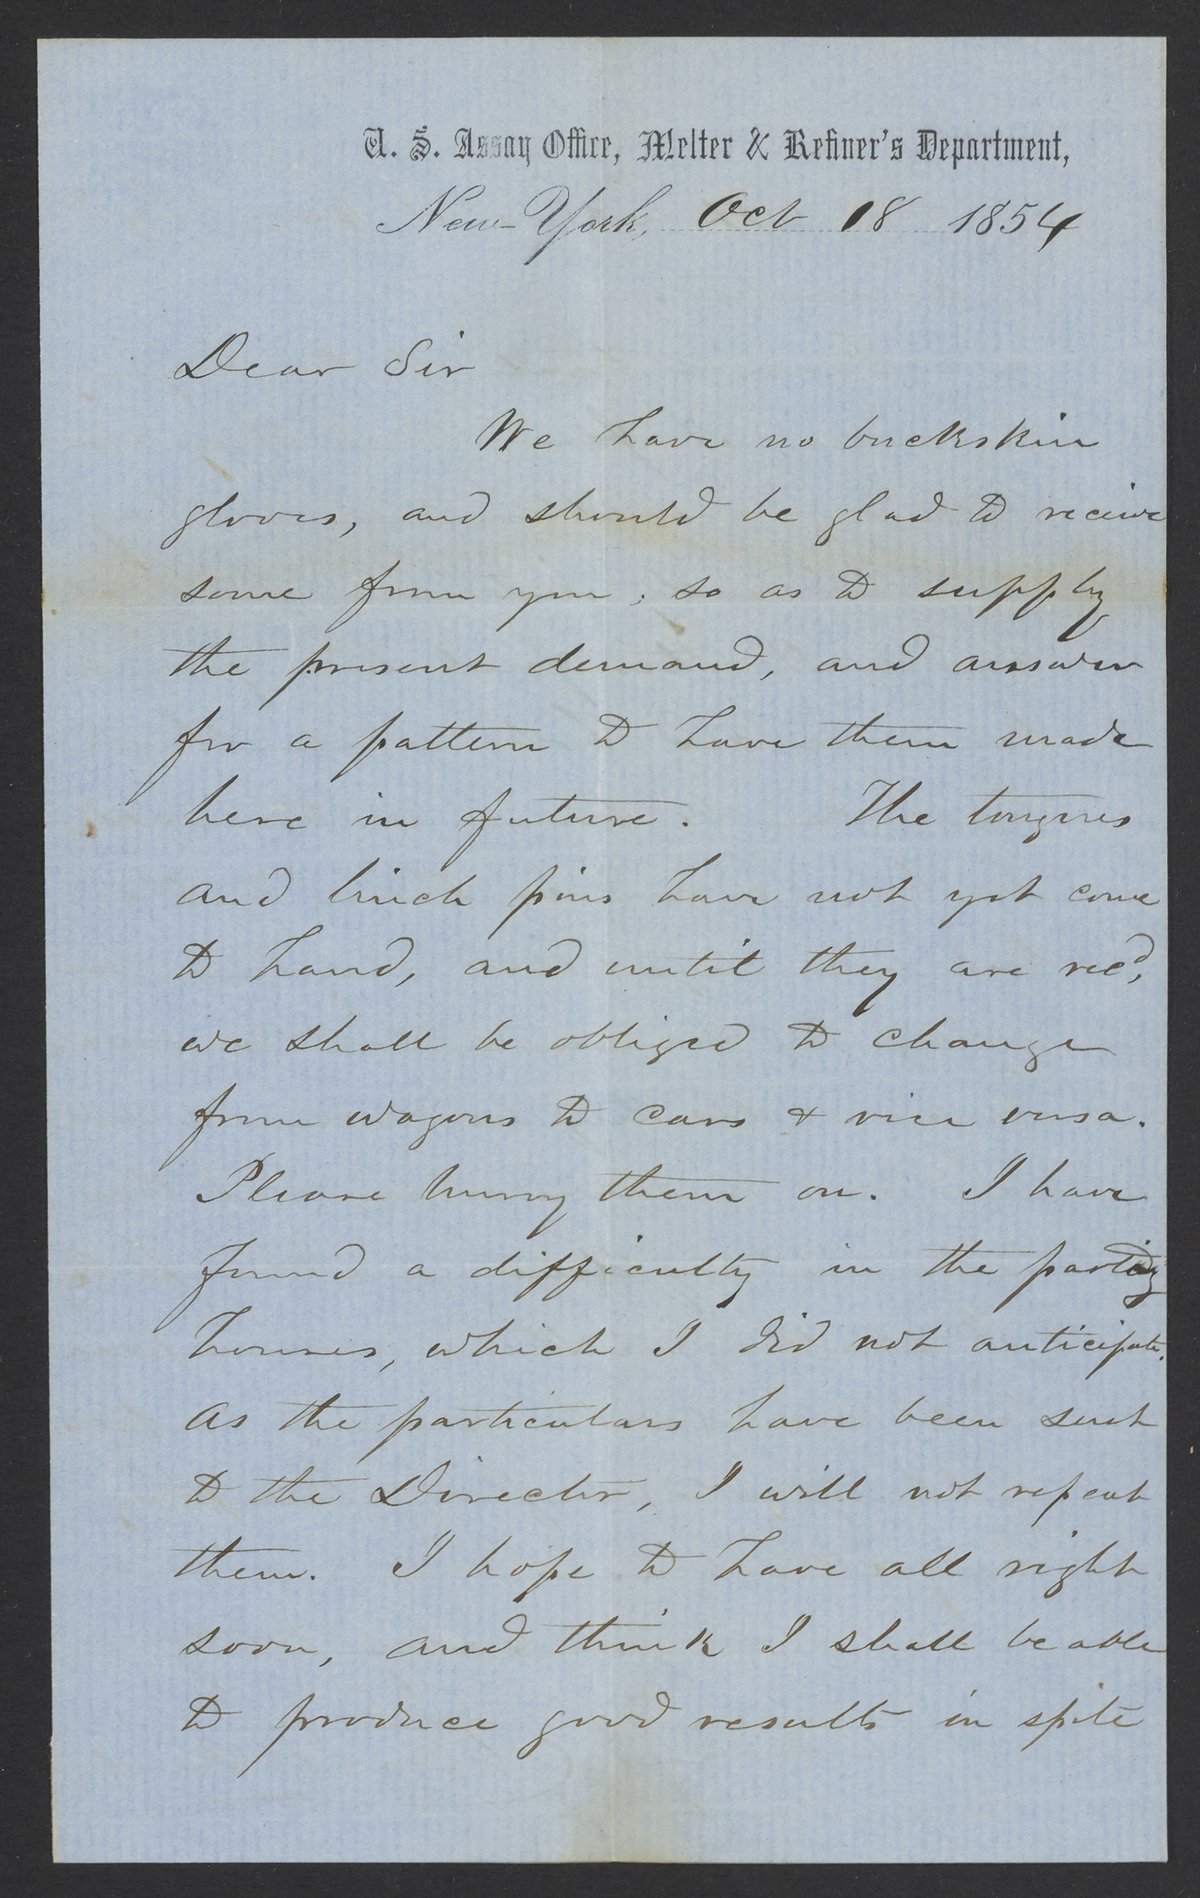 U. S. Assay Office, Melter & Refiner's Department,
New-York, Oct 18 1854
Dear Sir
We have no buckskin
gloves, and should be glad to receive
some from you, so as to supply
the present demand, and answer
for a pattern to have them made
here in future. The tongues
and linch pins have not yet come
to hand, and until they are recd,
we shall be obliged to change
from wagons to cars & vice versa.
Please hurry them on. I have
found a difficulty in the parting
houses, which I did not anticipate.
As the particulars have been sent
to the Director, I will not repeat
them. I hope to have all right
soon, and think I shall be able
to produce good results in spite